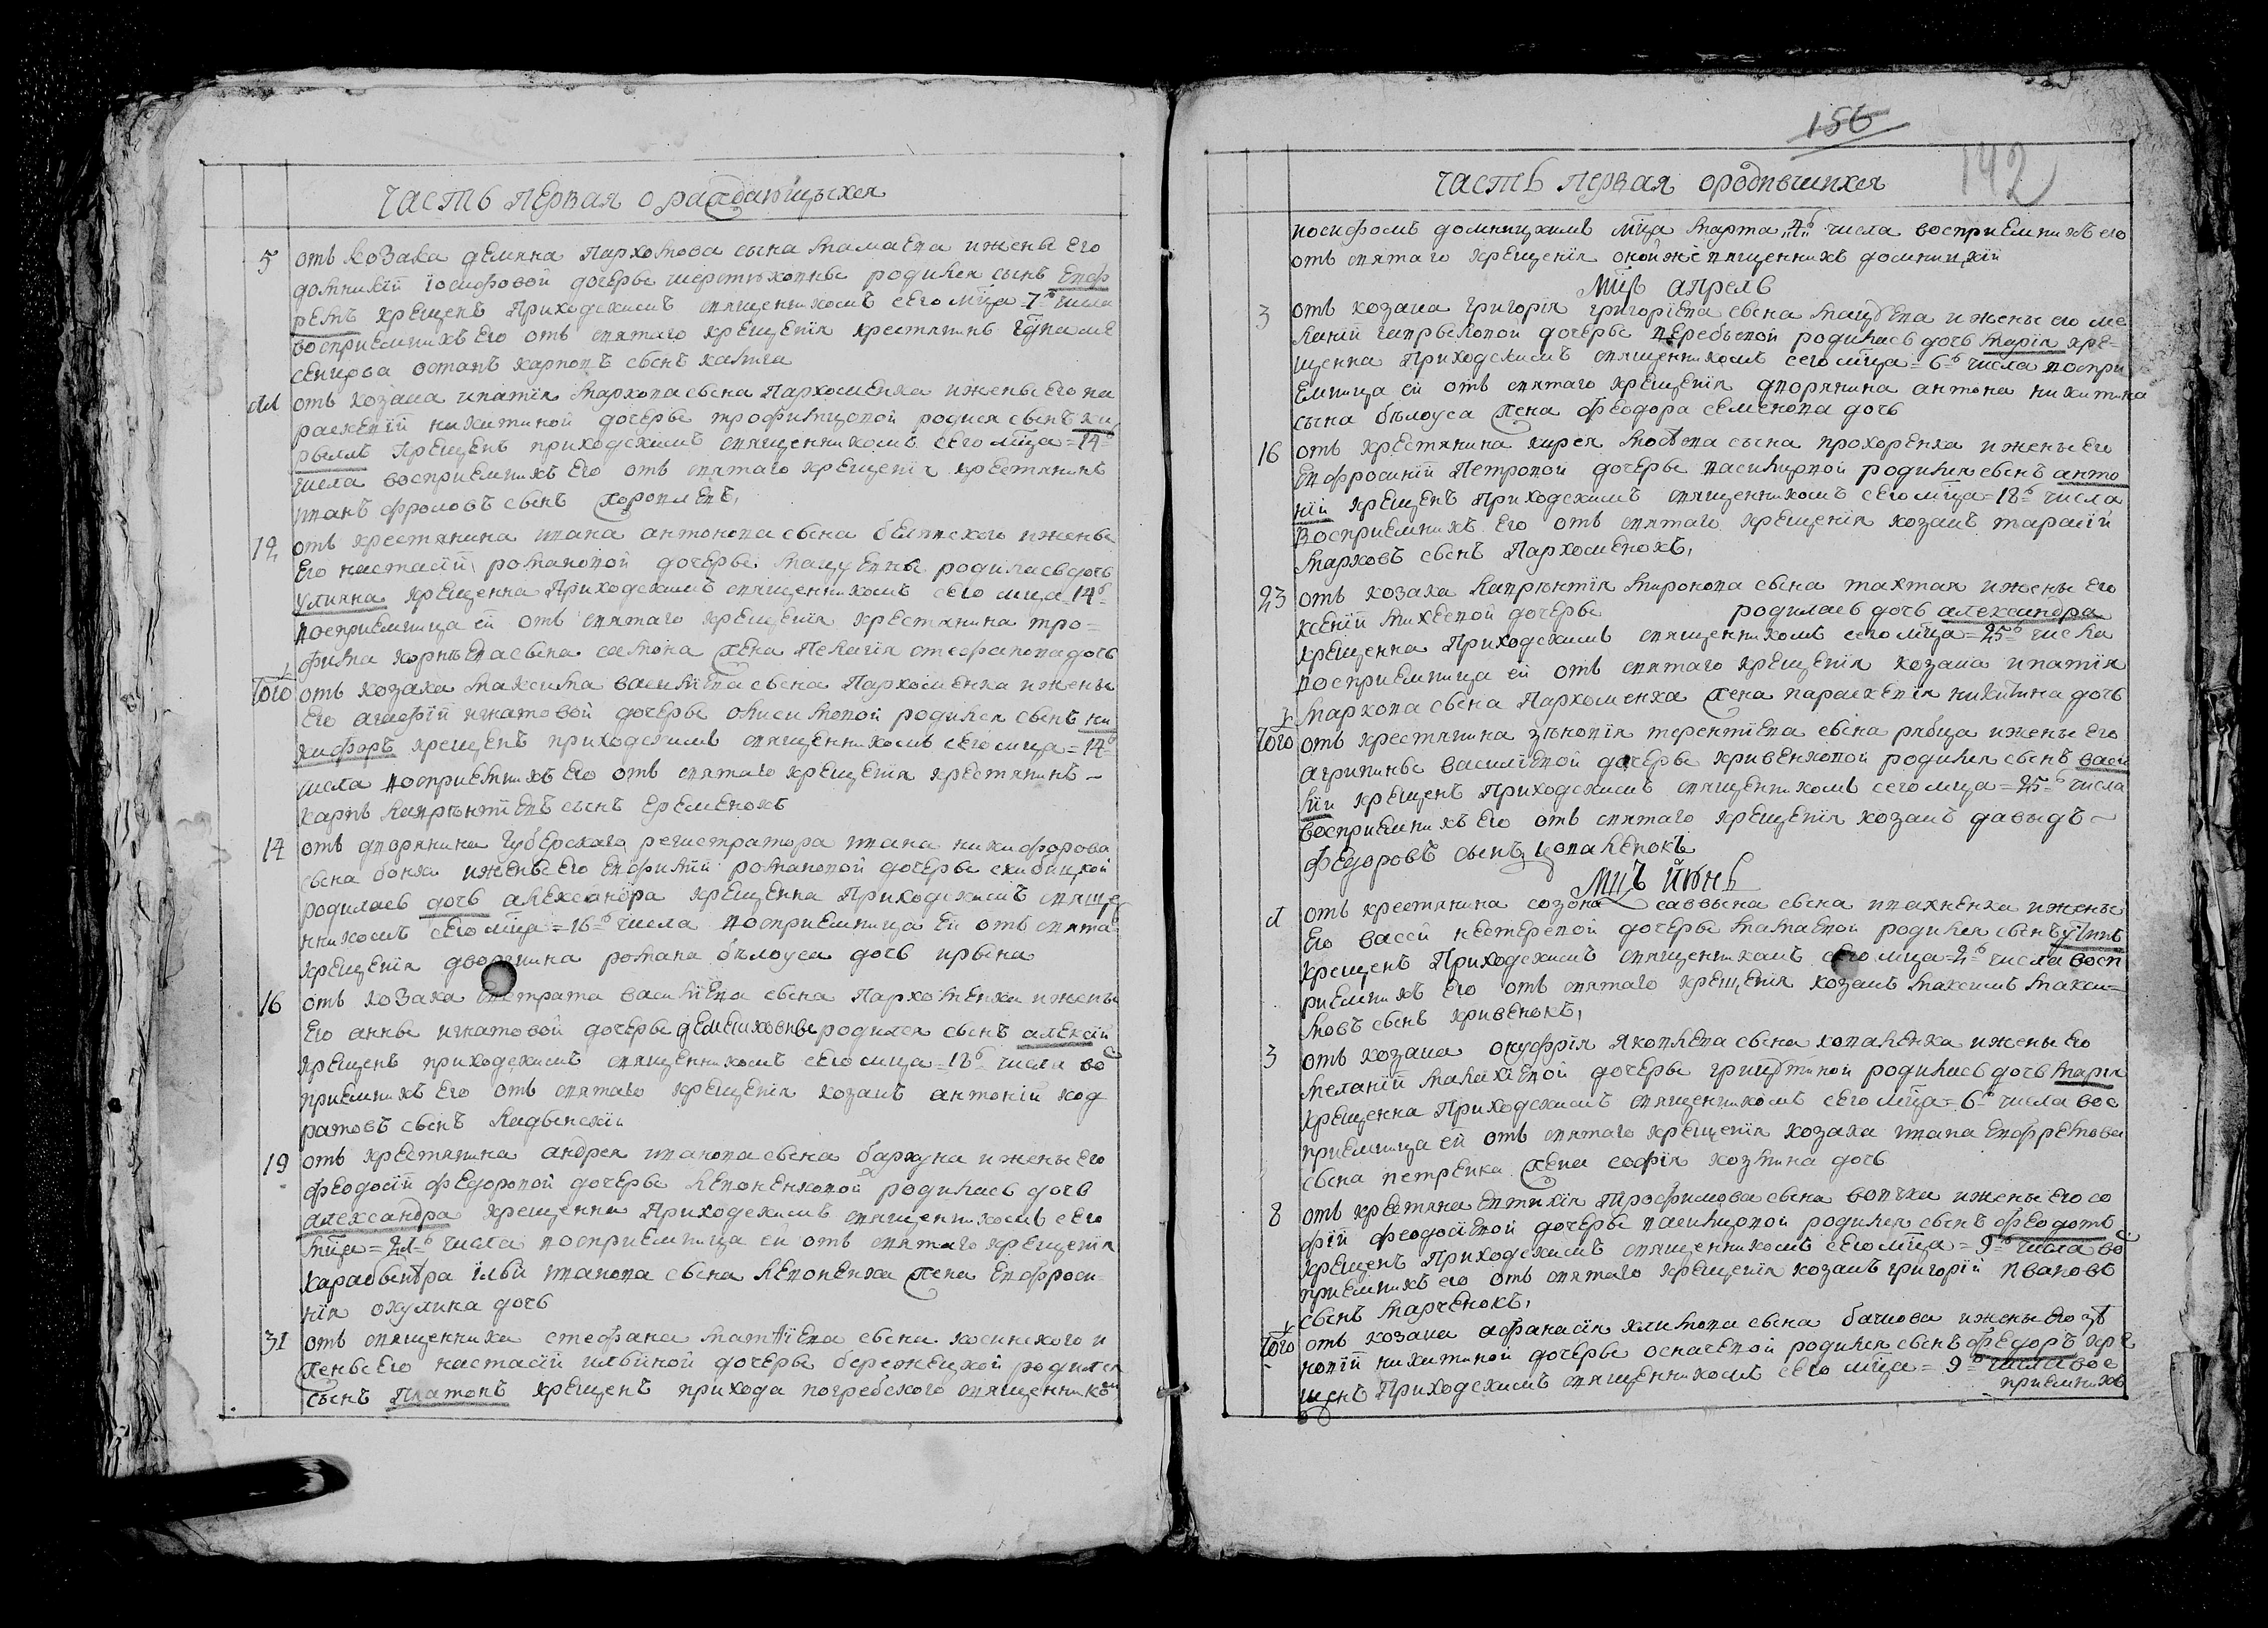 часть первая о раждающыхся
5 отъ козака демяна Пархомова сына мамаева и жены его
домникіи іосифовой дочеры шерстюковны родился сынъ Евф
ремъ крещенъ Приходскимъ священникомъ сего мца =7ъ числа
восприемникъ его отъ святаго крещенія крестянинъ
остапъ карповъ сынъ
отъ козака ипатія маркова сына Пархоменка и жены его па
раскевіи никитиной дочеры родися сынъ ки
рыллъ крещенъ приходскимъ священникомъ сего мца =14ъ
числа восприемникъ его отъ святаго крещенія крестянинъ
иванъ фроловъ сынъ
12 отъ крестянина ивана антонова сына белявского и жены
Его настасіи романовой дочеры родилась дочь
улияна крещенна Приходскимъ священникомъ сего мца 14ъ
восприемница ей отъ святаго крещенія крестянина тро=
фима корнѣева сына жена Пелагія стефанова дочь
того отъ козака максима василіева сына Пархоменка и жены
Его агафіи игнатовой дочеры родился сынъ ни
кифоръ крещенъ приходскимъ священникомъ сего мца =14ъ
числа восприемникъ его отъ святаго крещенія крестянинъ
карпъ лаврѣнтіевъ сынъ Еременокъ
14 отъ дворянина губерского регистратора ивана никифорова
сына и жены Его Евфиміи романовой дочеры скибицкой
родилась дочь александра крещенна Приходскимъ свяще
нникомъ сего мца =16ъ числа восприемница ей отъ свята
крещенія дворянина романа бѣлоуса дочь ирына
16 отъ козака василіева сына Пархоменка и жены
Его анны игнатовой дочеры демеиховны родился сынъ алексій
крещенъ приходскимъ священникомъ сего мца =18ъ числа во
приемникъ его отъ святаго крещенія козакъ антоній код
ратовъ сынъ
19 отъ крестянина андрея иванова сына и жены Его
феодосіи федоровой дочеры левоненковой родилась дочь
александра крещенна Приходскимъ священникомъ сего
мца =21ъ числа восприемница ей отъ святаго крещенія
ильи иванова сына левоненка жена Евфроси
нія окулина дочь
31 отъ священника стефана матѳіева сына косинского и
жены Его настасіи ильиной дочеры бережецкой родился
сынъ Платонъ крещенъ прихода погребского священником
156
142
часть первая о родившихся
иосифомъ домницкимъ мца марта „4ъ„ числа восприемникъ его
отъ святаго крещенія онойже священникъ домницкій
Мцъ апрель
3 отъ козака григорія григоріева сына и жены его ме
ланіи гавры­ловой дочеры родилась дочь марія кре=
щенна Приходскимъ священникомъ сего мца =6ъ числа воспри
Емница ей отъ святаго крещенія дворянина антона никитина
сына бѣлоуса жена феодора семенова дочь
16 отъ крестянина кирея сына прохоренка и жены Его
Евфросиніи Петровой дочеры родился сынъ анто
ній крещенъ Приходскимъ священникомъ сего мца =18ъ числа
Восприемникъ Его отъ святаго крещенія козакъ тарасій
марковъ сынъ Пархоменокъ,
23 отъ козака лаврѣнтія миронова сына тахтая и жены Его
ксеніи михеевой дочеры родилась дочь александра
крещенна Приходскимъ священникомъ сего мца =25ъ числа
восприемница ей отъ святаго крещенія козака ипатія
маркова сына Пархоменка жена параскевія никитина дочь
того отъ крестянина зѣновія терентіева сына рябца и жены Его
агрипины василіевой дочеры кривенковой родился сынъ васи
лій крещенъ Приходскимъ священникомъ сего мца =25ъ числа
восприемникъ Его отъ святаго крещенія козакъ давыдъ
федоровъ сынъ
Мцъ июнь
отъ крестянина созона саввына сына и жены
Его васси нестеревой дочеры мамаевой родился сынъ
крещенъ Приходскимъ священникомъ сего мца =2ъ числа восп
риемникъ Его отъ святаго крещенія козакъ максимъ макси=
мовъ сынъ кривенокъ,
3 отъ козака онуфрія яковлева сына коваленка и жены Его
меланіи дочеры родилась дочь марія
крещенна Приходскимъ священникомъ сего мца =6ъ числа вос
приемница ей отъ святаго крещенія козака ивана Евфремова
сына петренка жена софія козмина дочь
8 отъ крестяна Евтихія Трофимова сына и жены Его со
фіи феодосіевой дочеры родился сынъ феодотъ
крещенъ Приходскимъ священникомъ сего мца =9ъ числа во
приемникъ его отъ святаго крещенія козакъ григорій Ивановъ
сынъ марченокъ,
того отъ козака афанасія климова сына и жены Его зѣ
новіи никитиной дочеры родился сынъ федоръ кре
щенъ Приходскимъ священникомъ сего мца =9ъ числа вос
приемникъ